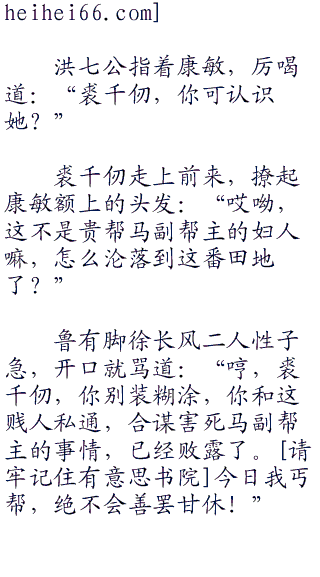 heihei66.com]
洪七公指着康敏，厉喝
道：“裘千仞，你可认识
她？”
裘千仞走上前来，撩起
康敏额上的头发：“哎呦，
这不是贵帮马副帮主的妇人
嘛，怎么沦落到这番田地
了？”
鲁有脚徐长风二人性子
急，开口就骂道：“哼，裘
千仞，你别装糊涂，你和这
贱人私通，合谋害死马副帮
主的事情，已经败露了。[请
牢记住有意思书院]今日我丐
帮，绝不会善罢甘休！”